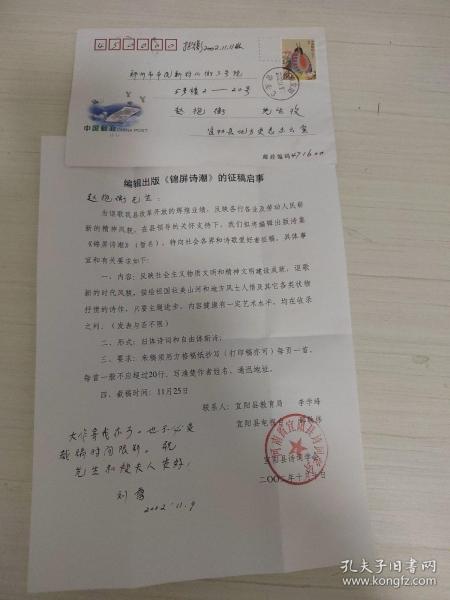 450000
抱衡2002.11.11收
郑州市中原新村
5号楼2—20号
赵抱衡 先生收
中国邮政 CHINA POST
宜阳县地方史志办公室
邮政编码471600
编辑出版《锦屏诗潮》的征稿启事
赵抱衡先生：
为讴歌我县改革开放的辉煌业绩，反映各行各业及劳动人民崭
新的精神风貌，在县领导的关怀支持下，我们拟将编辑出版诗集
《锦屏诗潮》（暂名），特向社会各界和诗歌爱好者征稿，具体事
宜和有关要求如下：
一、内容：反映社会主义物质文明和精神文明建设成就，讴歌
新的时代风貌，描绘祖国壮美山河和地方风土人情及其它各类状物
抒情的诗作，只要主题进步、内容健康有一定艺术水平，均在收录
之列。（发表与否不限）
二、形式：旧体诗词和自由体新诗。
三、要求：来稿须用方格稿纸抄写（打印稿亦可）每页一首，
每首一般不应超过20行，写清楚作者姓名、通讯地址。
四、截稿时间：11月25日
联系人：宜阳县教育局 李学峰
宜阳县电视台
宜阳县诗词学会
二〇〇二年十月 日
大作寄我亦可。也不必受
截稿时间限制。祝
先生和夫人安好！
刘
2002.11.9
孔夫子旧书网
www.kongfz.com